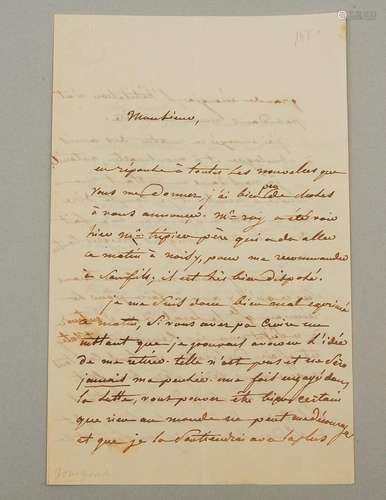 185
Monsieur,
en réponse à toutes les nouvelles que
vous me donnez, j'ai bien peu de choses
à vous annoncer. Mr roy a été voir
hier Mr père qui a du aller
ce matin à noisy, pour me recommander
à ses fils, il est très bien disposé.
je me suis donc bien mal exprimé
ce matin, si vous avez pu croire un
instant que je pouvais avoir eu l'idée
de me retirer. telle n'est pas et ne sera
jamais ma pensée. une fois engagé dans
la lutte, vous pouvez être bien certain
que rien au monde ne peut me décourager
et que je la soutiendrai avec la plus